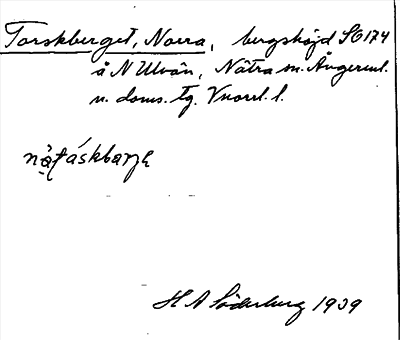 Torskberget, Norra, bergshöjd SG174
å N Ulvön, Nätra sn. Ångerml.
n. doms. tg. Vnorrl. l.
H A Söderberg 1939